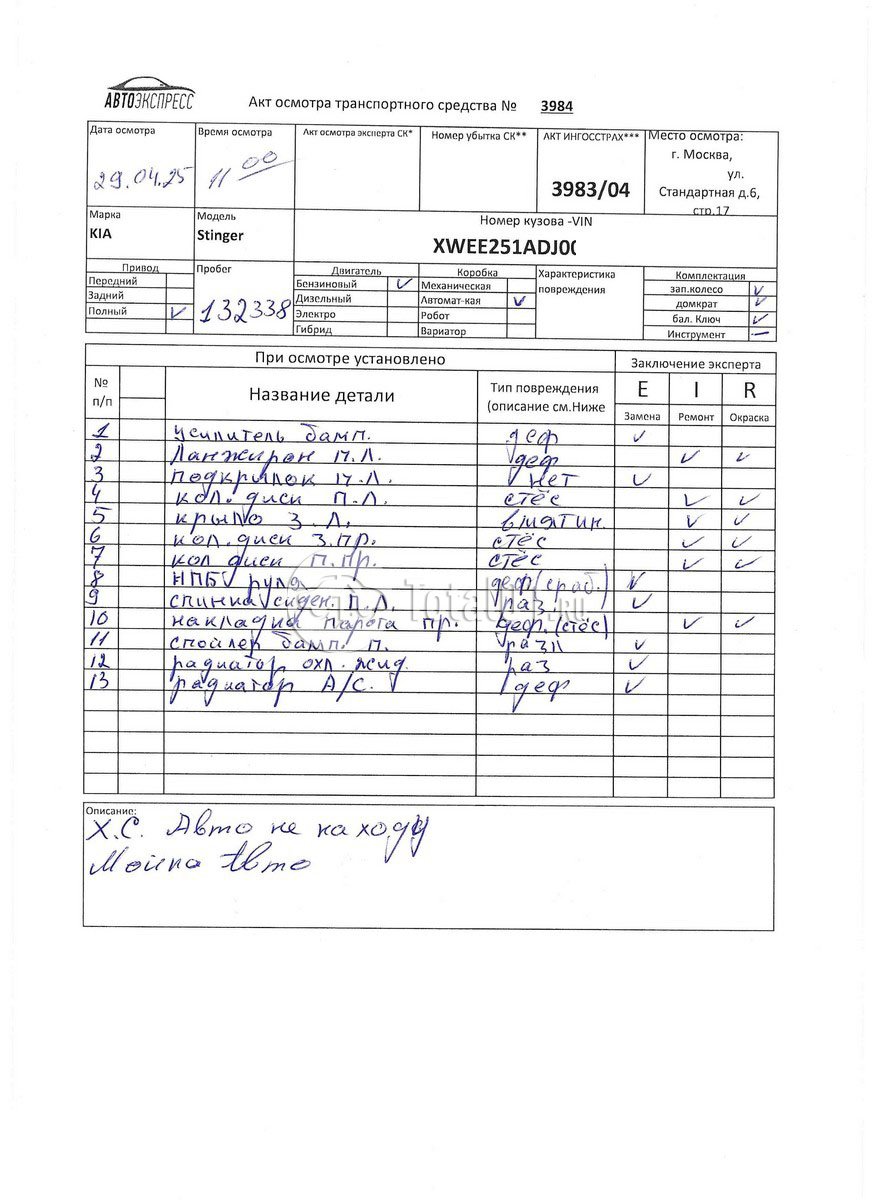 АВТОЭКСПРЕСС
Акт осмотра транспортного средства № 3984
Дата осмотра Время осмотра Акт осмотра эксперта СК* Номер убытка СК** АКТ ИНГОССТРАХ*** Место осмотра:
29.04.25 11 00 3983/04 г. Москва,
ул.
Стандартная д.6,
стр.17
Марка Модель Номер кузова -VIN
KIA Stinger XWEE251ADJ0(
Привод Пробег Двигатель Коробка Характеристика повреждения Комплектация
132338
Передний Бензиновый ✓ Механическая зап.колесо ✓
Задний Дизельный Автомат-кая ✓ домкрат ✓
Полный ✓ Электро Робот бал. Ключ ✓
Гибрид Вариатор Инструмент —
При осмотре установлено Заключение эксперта
№ п/п Название детали Тип повреждения (описание см.Ниже E I R
Замена Ремонт Окраска
1 усилитель бамп. деф ✓
2 Ланжирон П.Л. деф ✓ ✓
3 подкрылок П.Л. нет ✓
4 кол. диски П.Л. стёс ✓ ✓
5 крыло З.Л. вмятин. ✓ ✓
6 кол. диски З.ПР. стёс ✓ ✓
7 кол диски П.ПР. стёс ✓ ✓
8 НПБ руля деф(сраб.) ✓
9 спинка сиден. П.Л. раз ✓
10 накладка порога пр. деф.(стёс) ✓ ✓
11 спойлер бамп. п. разл ✓
12 радиатор охл. жид. раз ✓
13 радиатор А/С. деф ✓
Total01.ru
Описание:
Х.С. Авто не на ходу
Мойка Авто